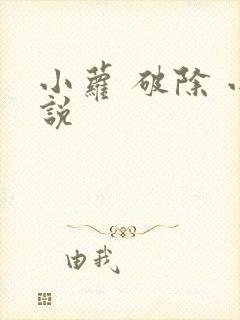 小蘿 破除
説
由我